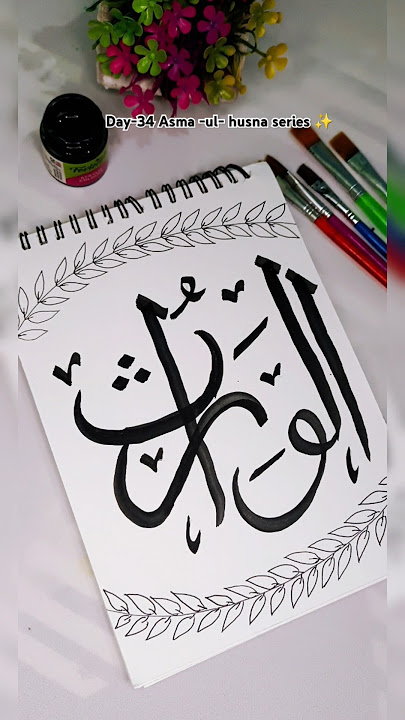 Day-34 Asma -ul- husna series ✨
الوارث